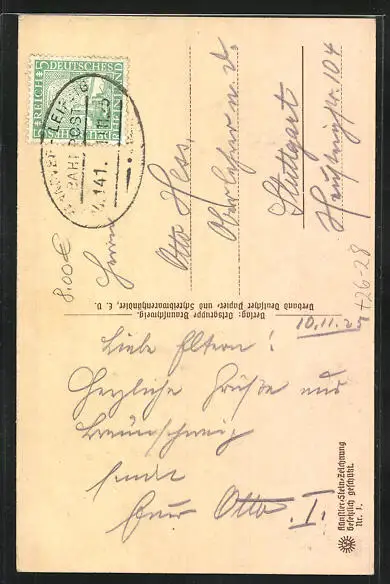 5 DEUTSCHES 5
REICH
RHEINLAND
BAHNPOST
Z.141.
Herrn
Otto Hess,
Oberlehrer a. D.
Stuttgart
104
8.00€
426-28
Verlag: Ortsgruppe Braunschweig.
Verband Deutscher Papier- und Schreibwarenhändler, E. V.
10.11.25
Liebe Eltern!
Herzliche Grüße aus
Braunschweig
sendet
Euer Otto I.
Künstler-Stein-Zeichnung
Gesetzlich geschützt.
Nr. 1.